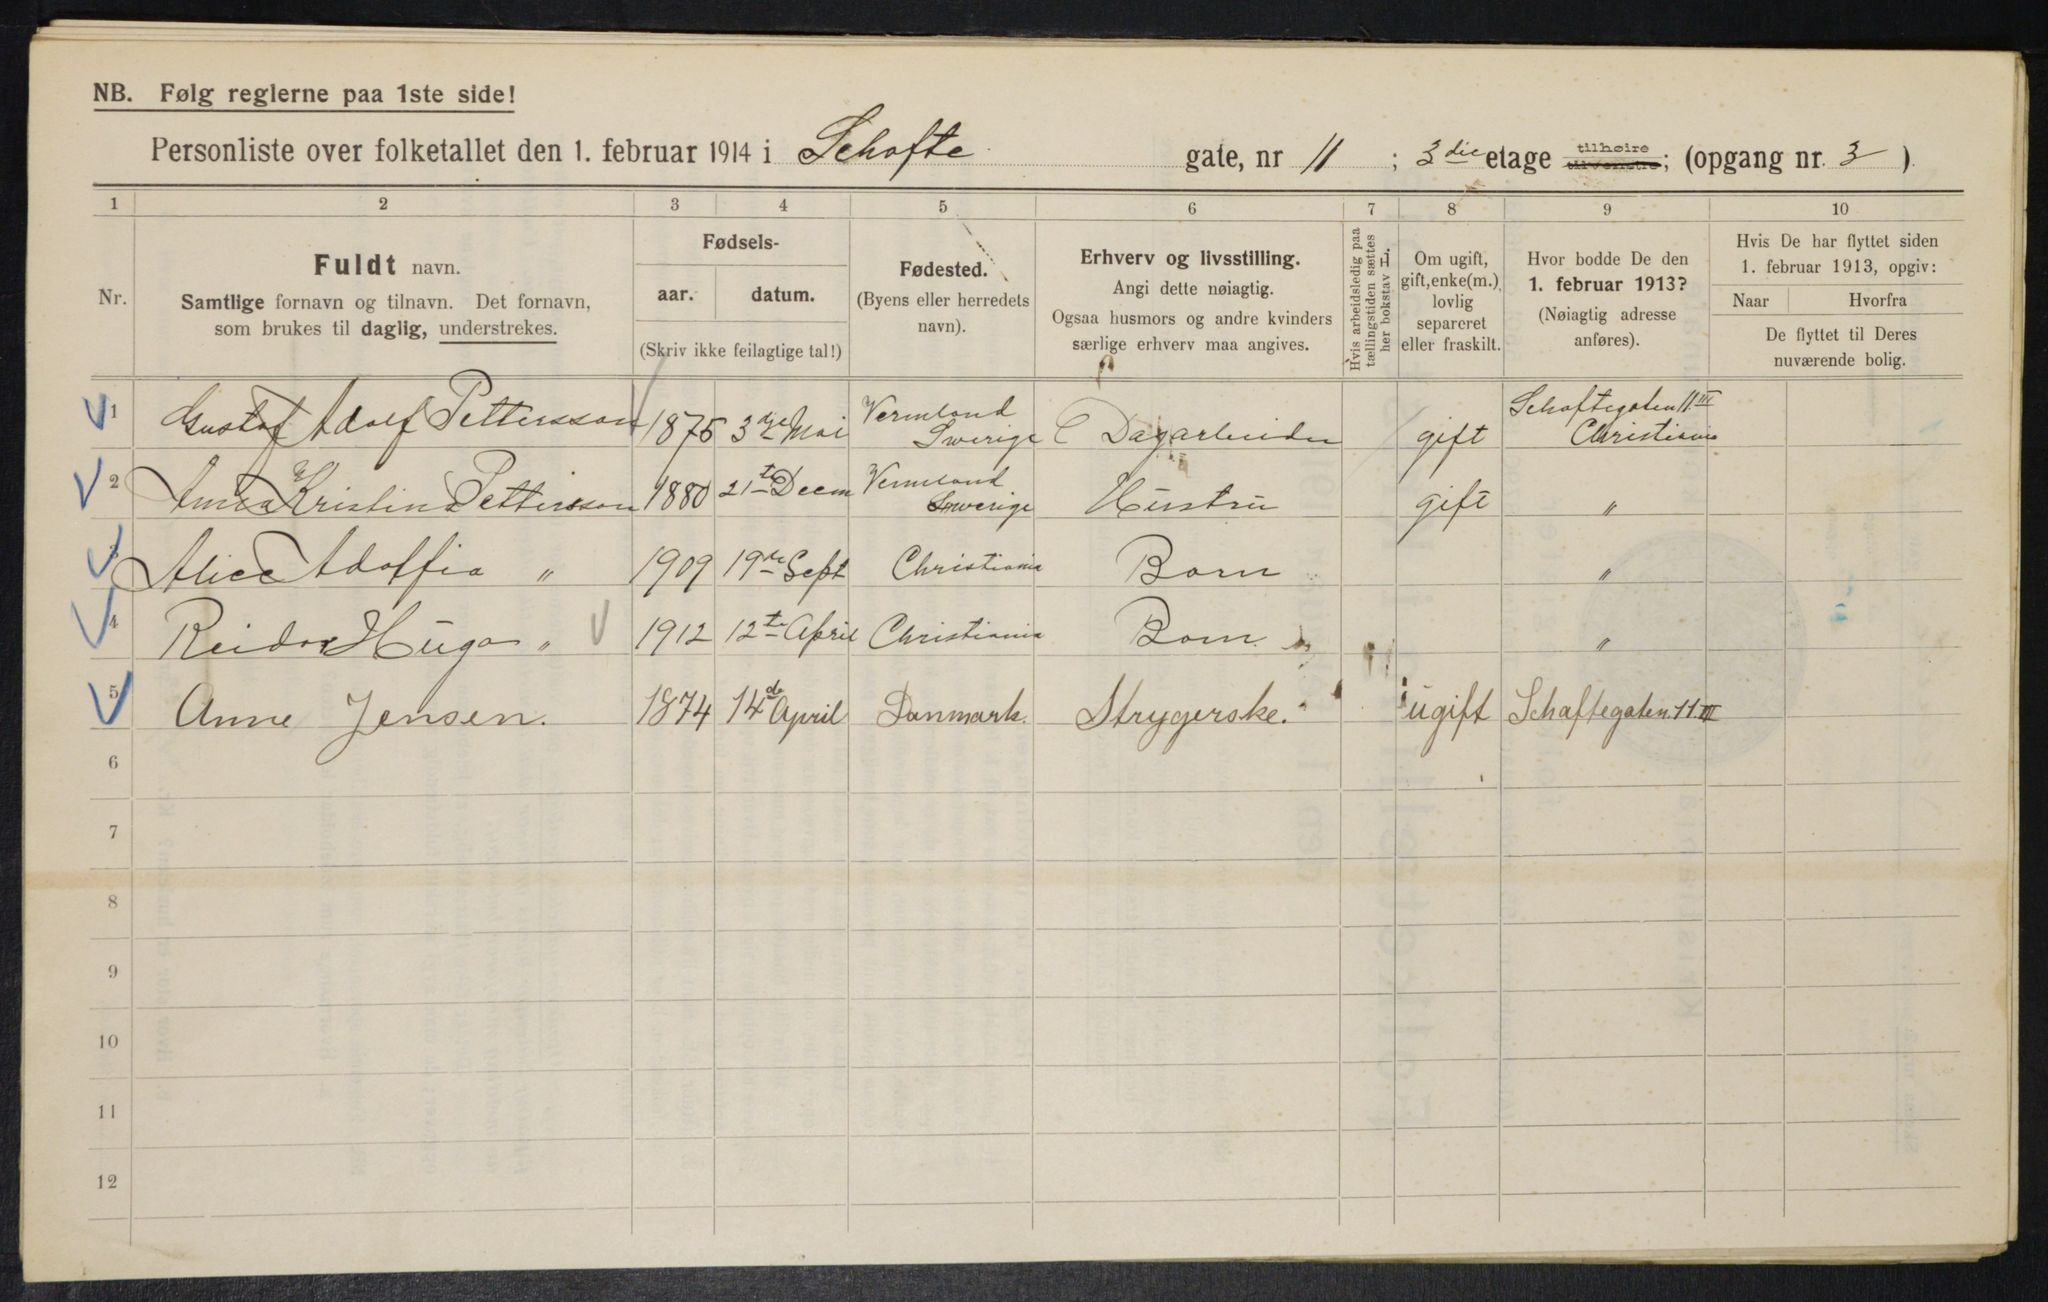 NB. Følg reglerne paa 1ste side!
Personliste over folketallet den 1. februar 1914 i Schafte gate, nr 11 ; 3die etage tilhøire tilvenstre; (opgang nr. 3 )
1 2 3 4 5 6 7 8 9 10
Nr.
Fuldt navn.
Samtlige fornavn og tilnavn. Det fornavn,
som brukes til daglig, understrekes.
Fødsels-
aar. datum.
(Skriv ikke feilagtige tal!)
Fødested.
(Byens eller herredets
navn).
Erhverv og livsstilling.
Angi dette nøiagtig.
Ogsaa husmors og andre kvinders
særlige erhverv maa angives.
Hvis arbeidsledig paa
tællingstiden sættes
her bokstav L.
Om ugift,
gift, enke(m.),
lovlig
separeret
eller fraskilt.
Hvor bodde De den
1. februar 1913?
(Nøiagtig adresse
anføres).
Hvis De har flyttet siden
1. februar 1913, opgiv:
Naar Hvorfra
De flyttet til Deres
nuværende bolig.
1 Gustaf Adolf Pettersson 1875 3die Mai Vermland Swerige Dagarbeider gift Schaftegaten 11 III Christiania
2 Anna Kristina Pettersson 1880 21te Decm Vermland Swerige Hustru gift "
3 Alice Adolfia " 1909 19de Sept Christiania Barn "
4 Reidar Hugo " 1912 12te April Christiania Barn "
5 Anne Jensen. 1874 14de April Danmark. Strygerske. ugift Schaftegaten 11 III
6
7
8
9
10
11
12